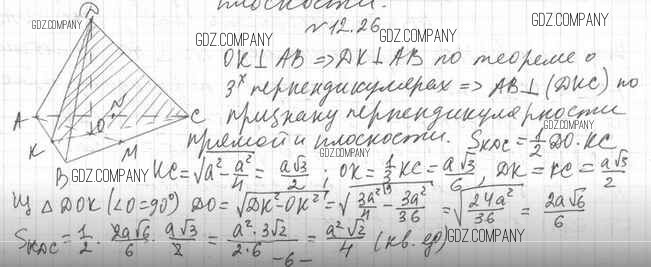 плоскости.
№12.26
GDZ.COMPANY
GDZ.COMPANY
GDZ.COMPANY
D
OK⊥AB ⇒ DK⊥AB по теореме о
3ˣ перпендикулярах ⇒ AB⊥(DKC) по
GDZ.COMPANY
признаку перпендикулярности
A O N C
прямой и плоскости. S_KDC = 1/2 DO·KC
GDZ.COMPANY
K M
B GDZ.COMPANY KC = √(a² - a²/4) = a√3/2 ; OK = 1/3 KC = a√3/6 , DK = KC = a√3/2
Из △ DOK (∠O=90°) DO = √(DK² - OK²) = √(3a²/4 - 3a²/36) = √(24a²/36) = 2a√6/6
S_KDC = 1/2 · 2a√6/6 · a√3/2 = a²·3√2/2·6 = a²√2/4 (кв. ед) GDZ.COMPANY
-6-